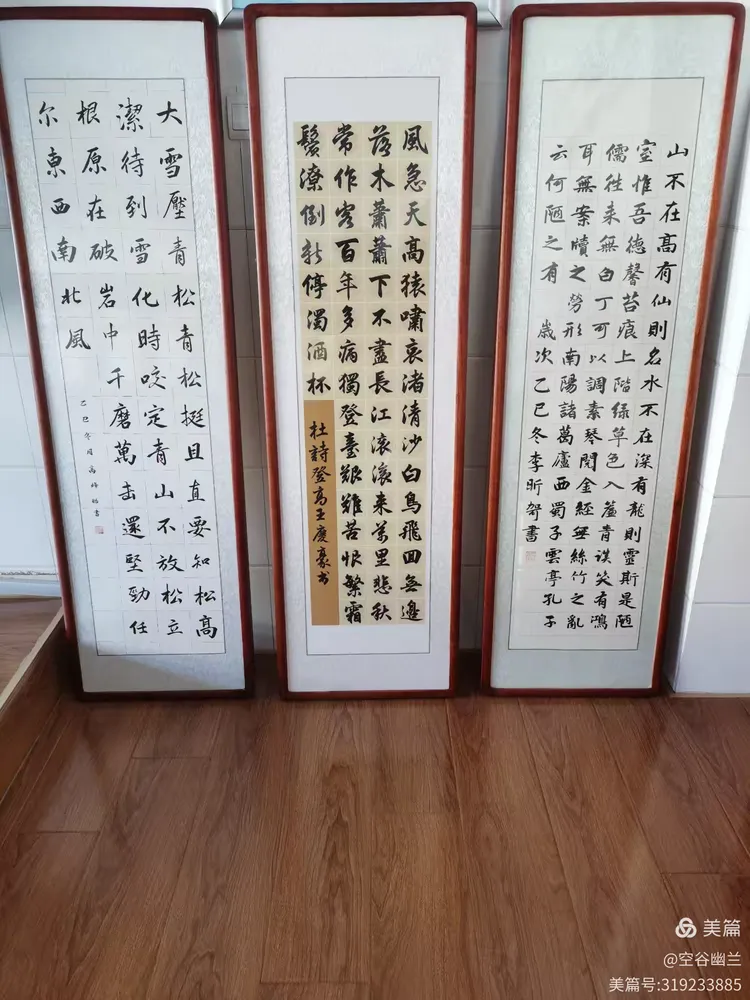 山不在高有仙則名水不在深有龍則靈斯是陋
室惟吾德馨苔痕上階绿草色入簾青談笑有鴻
儒往来無白丁可以調素琴閱金經無絲竹之亂
耳無案牘之勞形南陽諸葛廬西蜀子雲亭孔子
云何陋之有 歲次乙巳冬李昕書
風急天高猿嘯哀渚清沙白鳥飛回無邊
落木蕭蕭下不盡長江滾滾来萬里悲秋
常作客百年多病獨登臺艱難苦恨繁霜
鬢潦倒新停濁酒杯
杜詩登高王慶豪书
大雪壓青松青松挺且直要知松高
潔待到雪化時咬定青山不放松立
根原在破岩中千磨萬击還堅勁任
尔東西南北風
乙巳冬月高書
美篇
@空谷幽兰
美篇号:319233885